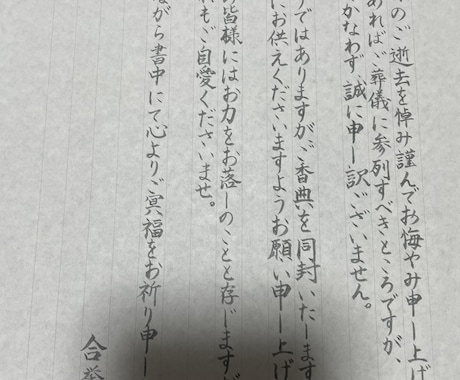 のご逝去を悼み謹んでお悔やみ申し上げ
あればご葬儀に参列すべきところですが、
かなわず、誠に申し訳ございません。
ではありますが、ご香典を同封いたします
にお供えくださいますようお願い申し上げ
皆様にはお力をお落としのことと存じますが
もご自愛くださいませ。
がら書中にて心よりご冥福をお祈り申し
合掌